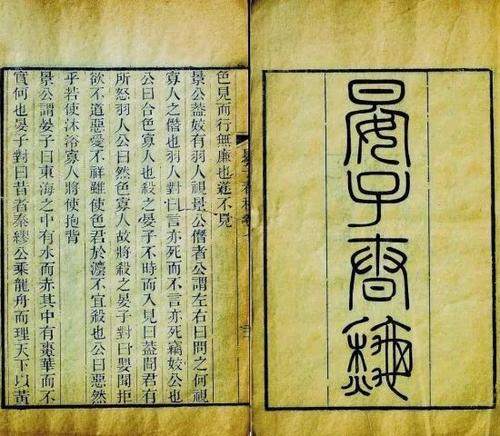 晏子春秋
色見而行無廉也遂不見
景公蓋姣有羽人視景公僭者公謂左右曰問之何視
寡人之僭也羽人對曰言亦死而不言亦死竊姣公也
公曰合色寡人也殺之晏子不時而入見曰蓋聞君有
所怒羽人公曰然色寡人故將殺之晏子對曰嬰聞拒
欲不道惡愛不祥雖使色君於灋不宜殺也公曰惡然
乎若使沐浴寡人將使抱背
景公謂晏子曰東海之中有水而赤其中有棗華而不
實何也晏子對曰昔者秦繆公乘龍舟而理天下以黃